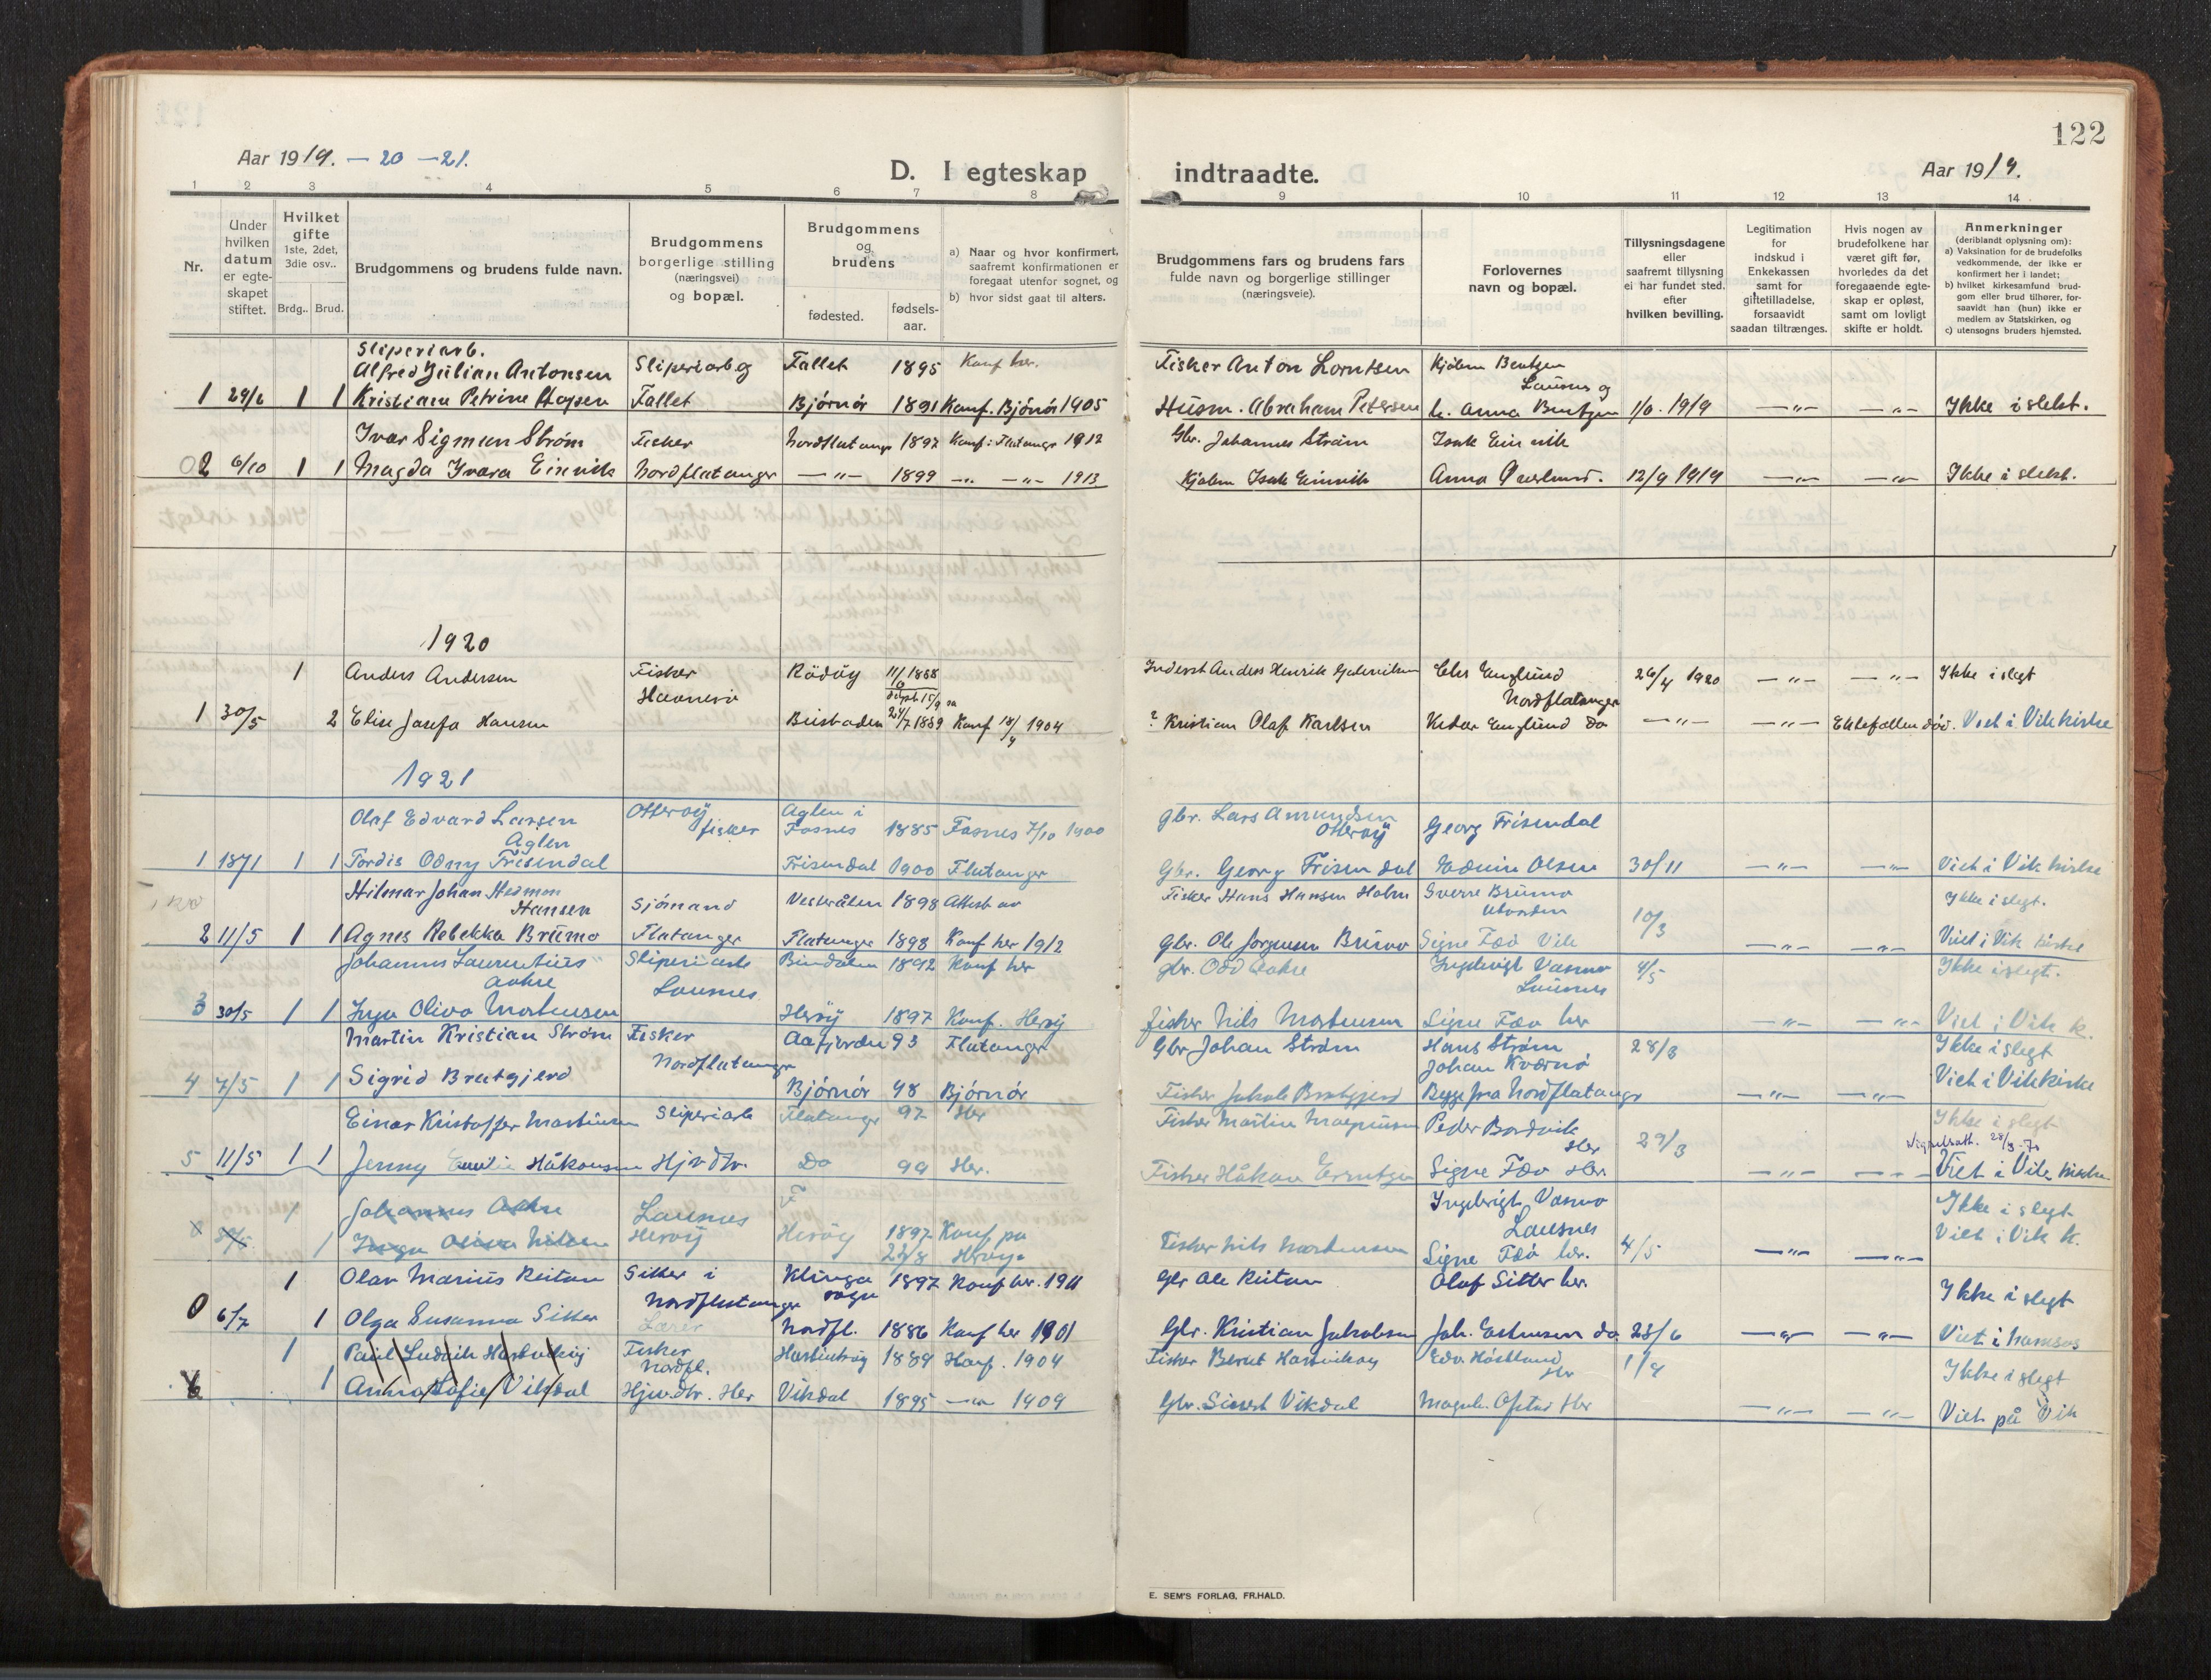 122
Aar 1919. — 20 — 21.
D. I egteskap indtraadte.
Aar 1919.
1 2 3 4 5 6 7 8 9 10 11 12 13 14
Nr.
Under hvilken datum er egte-skapet stiftet.
Hvilket gifte 1ste, 2det, 3die osv..
Brdg.. Brud.
Brudgommens og brudens fulde navn.
Brudgommens borgerlige stilling (næringsvei) og bopæl.
Brudgommens og brudens
fødested. fødsels-aar.
a) Naar og hvor konfirmert, saafremt konfirmationen er foregaat utenfor sognet, og
b) hvor sidst gaat til alters.
Brudgommens fars og brudens fars fulde navn og borgerlige stillinger (næringsveie).
Forlovernes navn og bopæl.
Tillysningsdagene eller saafremt tillysning ei har fundet sted. efter hvilken bevilling.
Legitimation for indskud i Enkekassen samt for giftetilladelse, forsaavidt saadan tiltrænges.
Hvis nogen av brudefolkene har været gift før, hvorledes da det foregaaende egte-skap er opløst, samt om lovligt skifte er holdt.
Anmerkninger (deriblandt oplysning om):
a) Vaksination for de brudefolks vedkommende, der ikke er konfirmert her i landet;
b) hvilket kirkesamfund brud-gom eller brud tilhører, for-saavidt han (hun) ikke er medlem av Statskirken, og
c) utensogns bruders hjemsted.
Sliperiarb.
Alfred Julian Antonsen Sliperiarb og Fallet 1895 Konf her. Fisker Anton Lorntsen Kjølem Bentzen
Lausnes og
1 29/6 1 1 Kristiane Petrine Fallet Bjørnør 1891 Konf. Bjørnør 1905 Husm. Abraham Petersen Anna Bentzen 1919 —"— —"— Ikke i slekt.
Ivar Sigmun Strøm Fisker Nordflatanger 1897 Konf i Flatanger 1912 Gbr. Johannes Strøm Isak Einvik
2 6/10 1 1 Magda Ivara Einvik Nordflatanger —"— 1899 —"— —"— 1913 Kjølem Isak Einvik Anna Øverlund. 12/9 1919 —"— —"— Ikke i slekt.
1920
1 Anders Andersen Fisker Rödöy 11/6 1888 Inderst Anders Henrik Elis Englund 26/4 1920 —"— —"— Ikke i slegt
Havnerø Nordflatanger
1 30/5 2 Elise Josefa Hansen 24/7 1889 Konf 18/9 1904 ? Kristian Olaf Karlsen Englund Do —"— —"— Ektefællen død. Viet i Vik kirke
1921
Olaf Edvard Larsen Otterøy Aglen i Gbr. Lars Amundsen
Aglen fisker Fosnes 1885 Fosnes 7/10 1900 Otterøy Georg Frisendal
1 18/1 1 1 Tordis Odny Frisendal Frisendal 1900 Flatanger Gbr. Georg Frisendal Edvin Olsen 30/11 —"— —"— Viet i Vik kirke
Hilmar Johan Hermon Fisker Hans Hansen Holm Sverre Brümo
Hansen Sjømand Vesterålen 1898 Attest av Utvorden 10/3 Ikke i slegt.
2 11/5 1 1 Agnes Rebekka Brümo Flatanger Flatanger 1898 Konf her 1912 Gbr. Ole Jørgensen Brümo Signe Fæø Vik —"— —"— Viet i Vik kirke
Johannes Laurentius Sliperiarb Bindalen 1892 Konf her gbr. Odd Aakre Ingebrigt Vasmo 4/5 Ikke i slegt.
Aakre Lausnes Lausnes
3 30/5 1 1 Inga Oliva Mortensen Herøy 1897 Konf. Herøy Fisker Nils Mortensen Signe Fæø her —"— —"— Viet i Vik k.
Martin Kristian Strøm Fisker Aafjorden 93 Flatanger Gbr Johan Strøm Hans Strøm 28/3 Ikke i slegt
Nordflatanger Johan Kværnø
4 7/5 1 1 Sigrid Bratgjerd Bjørnør 98 Bjørnør Fisker Jakob Bratgjerd Begge fra Nordflatanger —"— —"— Viet i Vik kirke
Einar Kristoffer Martinsen Sliperiarb Flatanger 97 Her Fisker Martin Peder Bordvik Ikke i slegt
Her 29/3
5 11/5 1 1 Jenny Emilie Håkonsen Hjv. dtr. Do 99 Her. Fisker Håkon Signe Fæø Her. —"— —"— Viet i Vik kirke
1 Johannes Aakre Lausnes F Ingebrigt Vasmo Ikke i slegt
Lausnes
1 Inga Oliva Nilsen Herøy Herøy 1897 Konf på Herøy. 22/8 Fisker Nils Mortensen Signe Fæø her. 4/5 —"— —"— Viet i Vik k.
1 Olav Marius Reitan Sitter i Klinga sogn 1897 Konf her. 1911 Gbr Ole Reitan Olaf Sitter her. Ikke i slegt
Nordflatanger
0 6/7 1 Olga Susanna Sitter Lærer Nordfl. 1886 Konf her 1901 Gbr. Kristian Jakobsen Joh. Do 28/6 —"— —"— Viet i Namsos
1 Paul Ludvik Fisker Nordfl. 1889 Konf. 1904 Fisker Bernt Edv. 1/9 Ikke i slegt
6 1 Anna Sofie Vikdal Hjv.dtr. Her Vikdal 1895 —"— 1909 Gbr. Sivert Vikdal Her —"— —"— Viet på Vik
E. SEM'S FORLAG, FR.HALD.